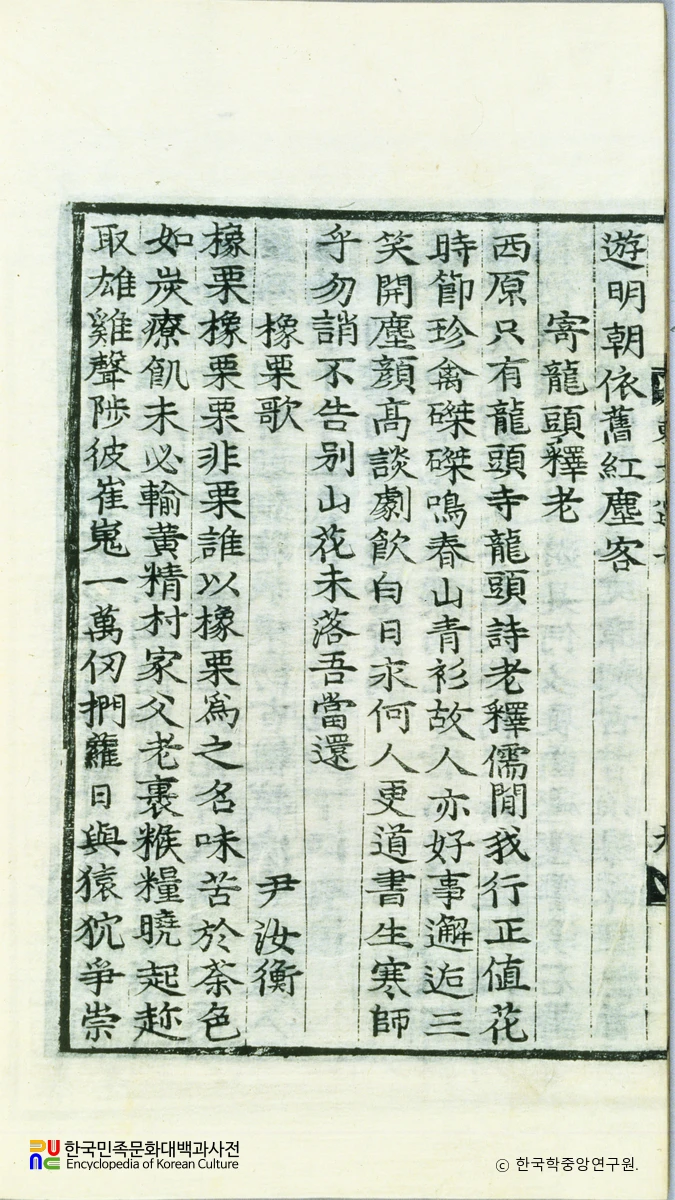 遊明朝依舊紅塵客
寄龍頭釋老
西原只有龍頭寺龍頭詩老釋儒閒我行正值花
時節珍禽磔磔鳴春山青衫故人亦好事邂逅三
笑開塵顔髙談劇飮白日永何人更道書生寒師
乎勿誚不告别山花未落吾當還
橡栗歌 尹汝衡
橡栗橡栗栗非栗誰以橡栗爲之名味苦於荼色
如炭療飢未必輸黄精村家父老裹糇糧曉起趂
取雄雞聲陟彼崔嵬一萬仞捫蘿日與猿狖爭崇
한국민족문화대백과사전
Encyclopedia of Korean Culture
© 한국학중앙연구원.